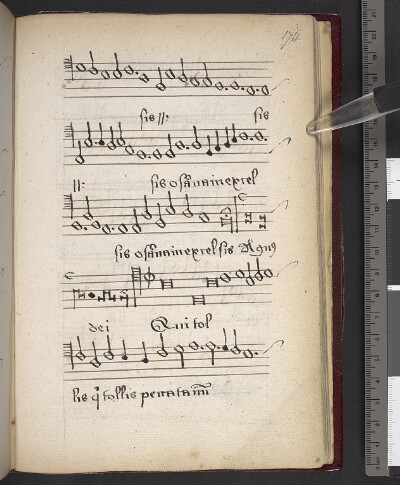 174
sis //: sis
//: sis osāna in excel
sis osāna in excelsis Agnus
dei Qui tol
lis q̄ tollis peccata